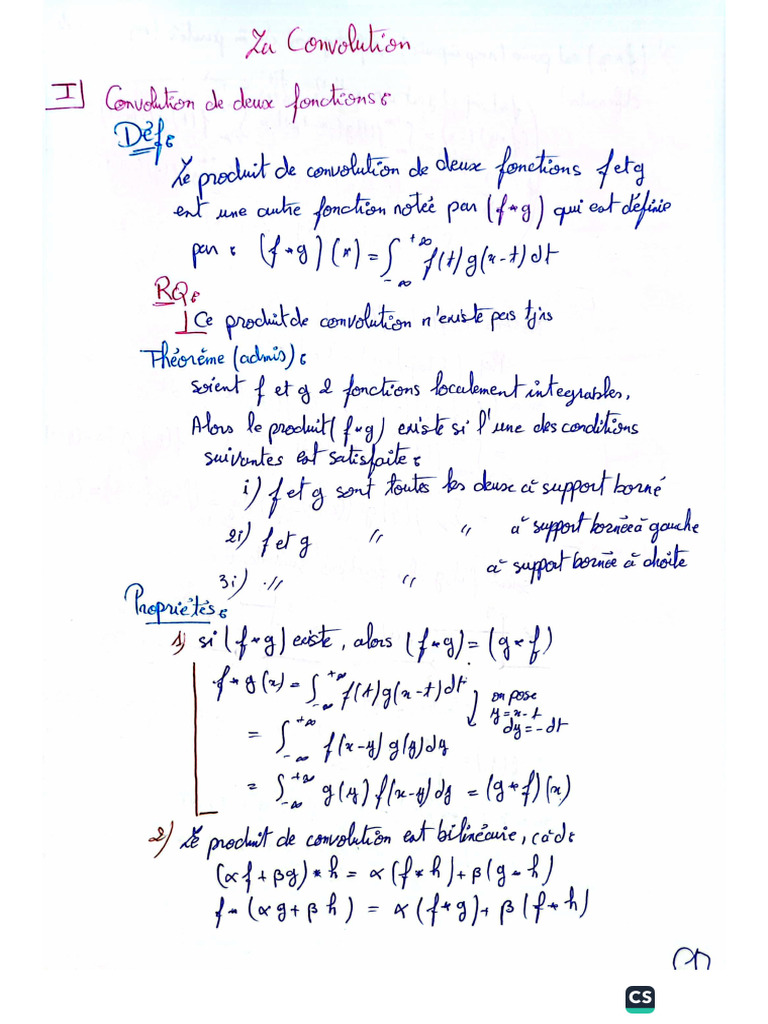 La Convolution
I] Convolution de deux fonctions:
Déf:
Le produit de convolution de deux fonctions f et g
est une autre fonction notée par (f*g) qui est définie
par : (f*g)(x) = ∫_{-∞}^{+∞} f(t) g(x-t) dt
RQ:
Ce produit de convolution n'existe pas tjrs
Théorème (admis):
soient f et g 2 fonctions localement integrables,
Alors le produit (f*g) existe si l'une des conditions
suivantes est satisfaite:
i) f et g sont toutes les deux à support borné
2i) f et g " " à support bornée à gauche
3i) " " à support bornée à droite
Propriétés:
1) si (f*g) existe, alors (f*g) = (g*f)
f*g(x) = ∫_{-∞}^{+∞} f(t) g(x-t) dt
on pose
y = x-t
dy = -dt
= ∫_{-∞}^{+∞} f(x-y) g(y) dy
= ∫_{-∞}^{+∞} g(y) f(x-y) dy = (g*f)(x)
2) Le produit de convolution est bilinéaire, càd:
(αf + βg)*h = α(f*h) + β(g*h)
f*(αg + βh) = α(f*g) + β(f*h)
CS